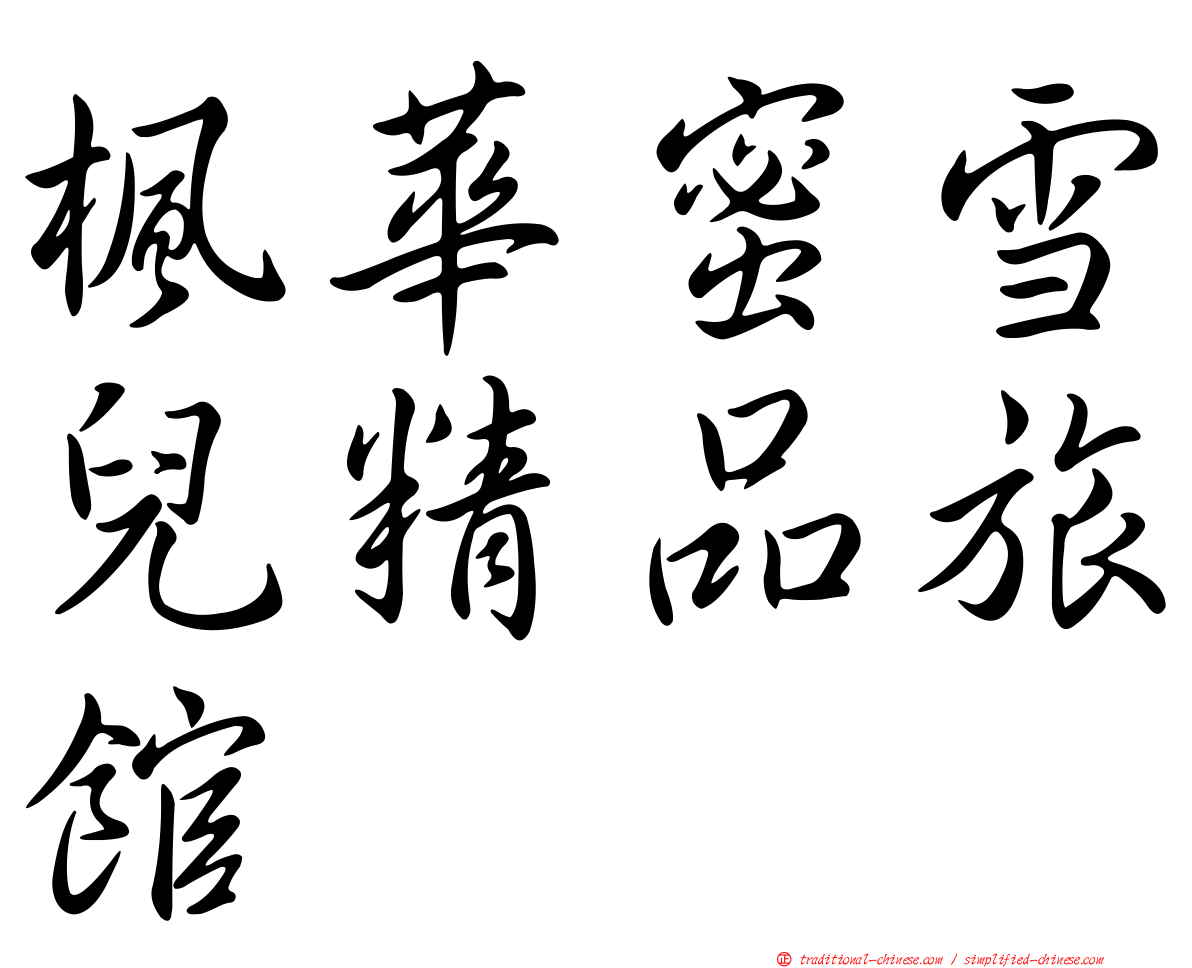 楓華蜜雪
兒精品旅
館
㊣ traditional-chinese.com / simplified-chinese.com